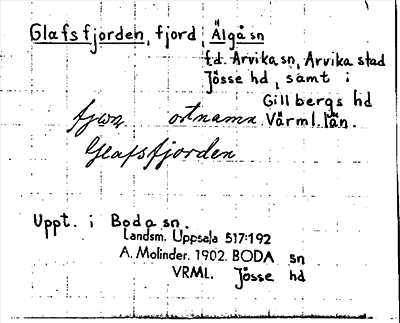 Glafsfjorden, fjord, Älgå sn
f.d. Arvika sn, Arvika stad
Jösse hd, samt i
Gillbergs hd
fjwn. ortnamn. Värml. län.
Glafsfjorden
Uppt. i Boda sn.
Landsm. Uppsala 517:192
A. Molinder. 1902. BODA sn
VRML. Jösse hd